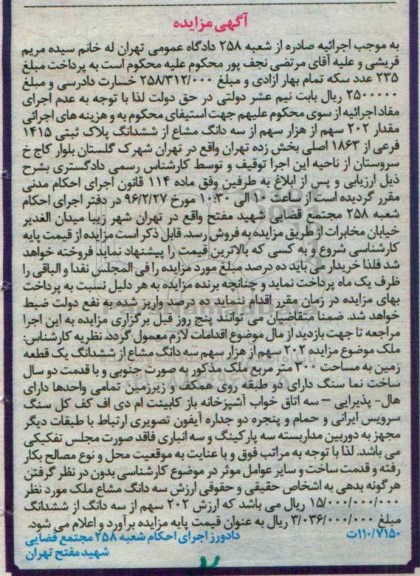 آگهی مزایده
به موجب اجرائیه صادره از شعبه ۲۵۸ دادگاه عمومی تهران له خانم سیده مریم
قریشی و علیه آقای مرتضی نجف پور محکوم علیه محکوم است به پرداخت مبلغ
۲۳۵ عدد سکه تمام بهار آزادی و مبلغ ۲۵۸/۳۱۲/۰۰۰ خسارت دادرسی و مبلغ
۲۵۰۰۰۰۰ ریال بابت نیم عشر دولتی در حق دولت لذا با توجه به عدم اجرای
مفاد اجرائیه از سوی محکوم علیهم جهت استیفای محکوم به و هزینه های اجرائی
مقدار ۲۰۲ سهم از هزار سهم از سه دانگ مشاع از ششدانگ پلاک ثبتی ۱۴۱۵
فرعی از ۱۸۶۳ اصلی بخش زده تهران واقع در تهران شهرک گلستان بلوار کاج خ
سروستان از ناحیه این اجرا توقیف و توسط کارشناس رسمی دادگستری بشرح
ذیل ارزیابی و پس از ابلاغ به طرفین وفق ماده ۱۱۴ قانون اجرای احکام مدنی
مقرر گردیده است از ساعت ۱۰ الی ۱۰:۳۰ مورخ ۹۶/۲/۲۷ در دفتر اجرای احکام
شعبه ۲۵۸ مجتمع قضایی شهید مفتح واقع در تهران شهر زیبا میدان الغدیر
خیابان مخابرات از طریق مزایده به فروش رسد. قابل ذکر است مزایده از قیمت پایه
کارشناسی شروع و به کسی که بالاترین قیمت را پیشنهاد نماید فروخته خواهد
شد فلذا خریدار می باید ده درصد مبلغ مورد مزایده را فی المجلس نقدا و الباقی را
ظرف یک ماه پرداخت نماید و چنانچه برنده مزایده به هر دلیل نسبت به پرداخت
بهای مزایده در زمان مقرر اقدام ننماید ده درصد واریز شده به نفع دولت ضبط
خواهد شد. ضمنا متقاضیان می توانند پنج روز قبل برگزاری مزایده به این اجرا
مراجعه تا جهت بازدید از مال موضوع اقدامات لازم معمول گردد. نظریه کارشناس:
ملک موضوع مزایده ۲۰۲ سهم از هزار سهم سه دانگ مشاع از ششدانگ یک قطعه
زمین به مساحت ۳۰۰ متر مربع ملک مذکور به صورت جنوبی و با قدمت دو سال
ساخت نما سنگ دارای دو طبقه روی همکف و زیرزمین تمامی واحدها دارای
هال- پذیرایی – سه اتاق خواب آشپزخانه باز کابینت ام دی اف کف کل سنگ
سرویس ایرانی و حمام و پنجره دو جداره آیفون تصویری ارتباط با طبقات دیگر
مجهز به دوربین مداربسته سه پارکینگ و سه انباری فاقد صورت مجلس تفکیکی
می باشد. لذا با توجه به مراتب فوق و با عنایت به موقعیت محل و نوع مصالح بکار
رفته و قدمت ساخت و سایر عوامل موثر در موضوع کارشناسی بدون در نظر گرفتن
هرگونه بدهی به اشخاص حقیقی و حقوقی ارزش سه دانگ مشاع ملک مورد نظر
۱۵/۰۰۰/۰۰۰/۰۰۰ ریال می باشد که ارزش ۲۰۲ سهم از سه دانگ از ششدانگ
مبلغ ۳/۰۳۶/۰۰۰/۰۰۰ ریال به عنوان قیمت پایه مزایده برآورد و اعلام می شود.
۱۱۰/۷۱۵۰ت دادورز اجرای احکام شعبه ۲۵۸ مجتمع قضایی
شهید مفتح تهران